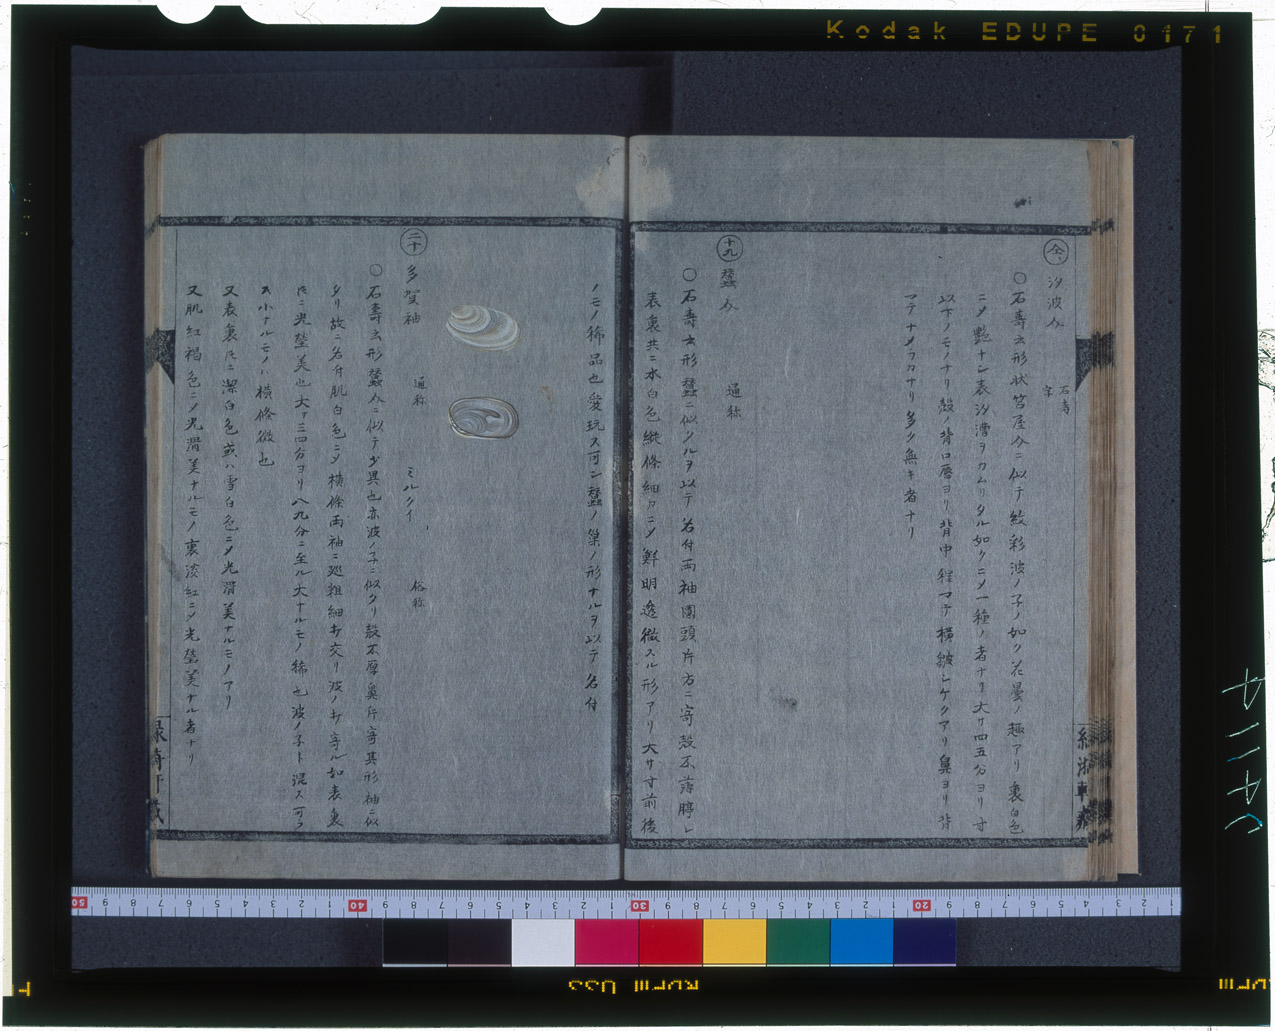 Kodak EDUPE 0171
仝
汐波介 石寿 字
○石壽云形状笘屋介ニ似テ紋彩波ノ子ノ如ク花曇ノ趣アリ裏白色
ニメ艶ナシ表汐漕ヲカムリタル如クニメ一種ノ者ナリ大サ四五分ヨリ寸
以下ノモノナリ殻ノ背口唇ヨリ背中程マテ横皺シケクアリ鼻ヨリ背
マテナメラカナリ多ク無キ者ナリ
十九
蠶介 通称
○石壽云形蠶ニ似タルヲ以テ名付両袖圓頭片方ニ寄殻不薄脖レ
表裏共ニ水白色縦條細カニメ鮮明透徹スル形アリ大サ寸前後
ノモノ稀品也愛玩ス可シ蠶ノ巣ノ形ナルヲ以テ名付
二十
多賀袖 通称 ミルクイ 俗称
○石壽云形蠶介ニ似テ少異也亦波ノ子ニ似タリ殻不厚鼻片寄其形袖ニ似
タリ故ニ名付肌白色ニメ横條両袖ニ廻粗細キ交リ波ノキ寄ル如表裏
氏ニ光瑩美也大サ三四分ヨリ八九分ニ至ル大ナルモノ稀也波ノ子ト混ス可ラ
ス小ナルモノハ横條微也
又表裏氏ニ潔白色或ハ雪白色ニメ光滑美ナルモノアリ
又肌紅褐色ニメ光滑美ナルモノ裏淡紅ニメ光瑩美ナル者ナリ
50 40 30 20
RDPIII